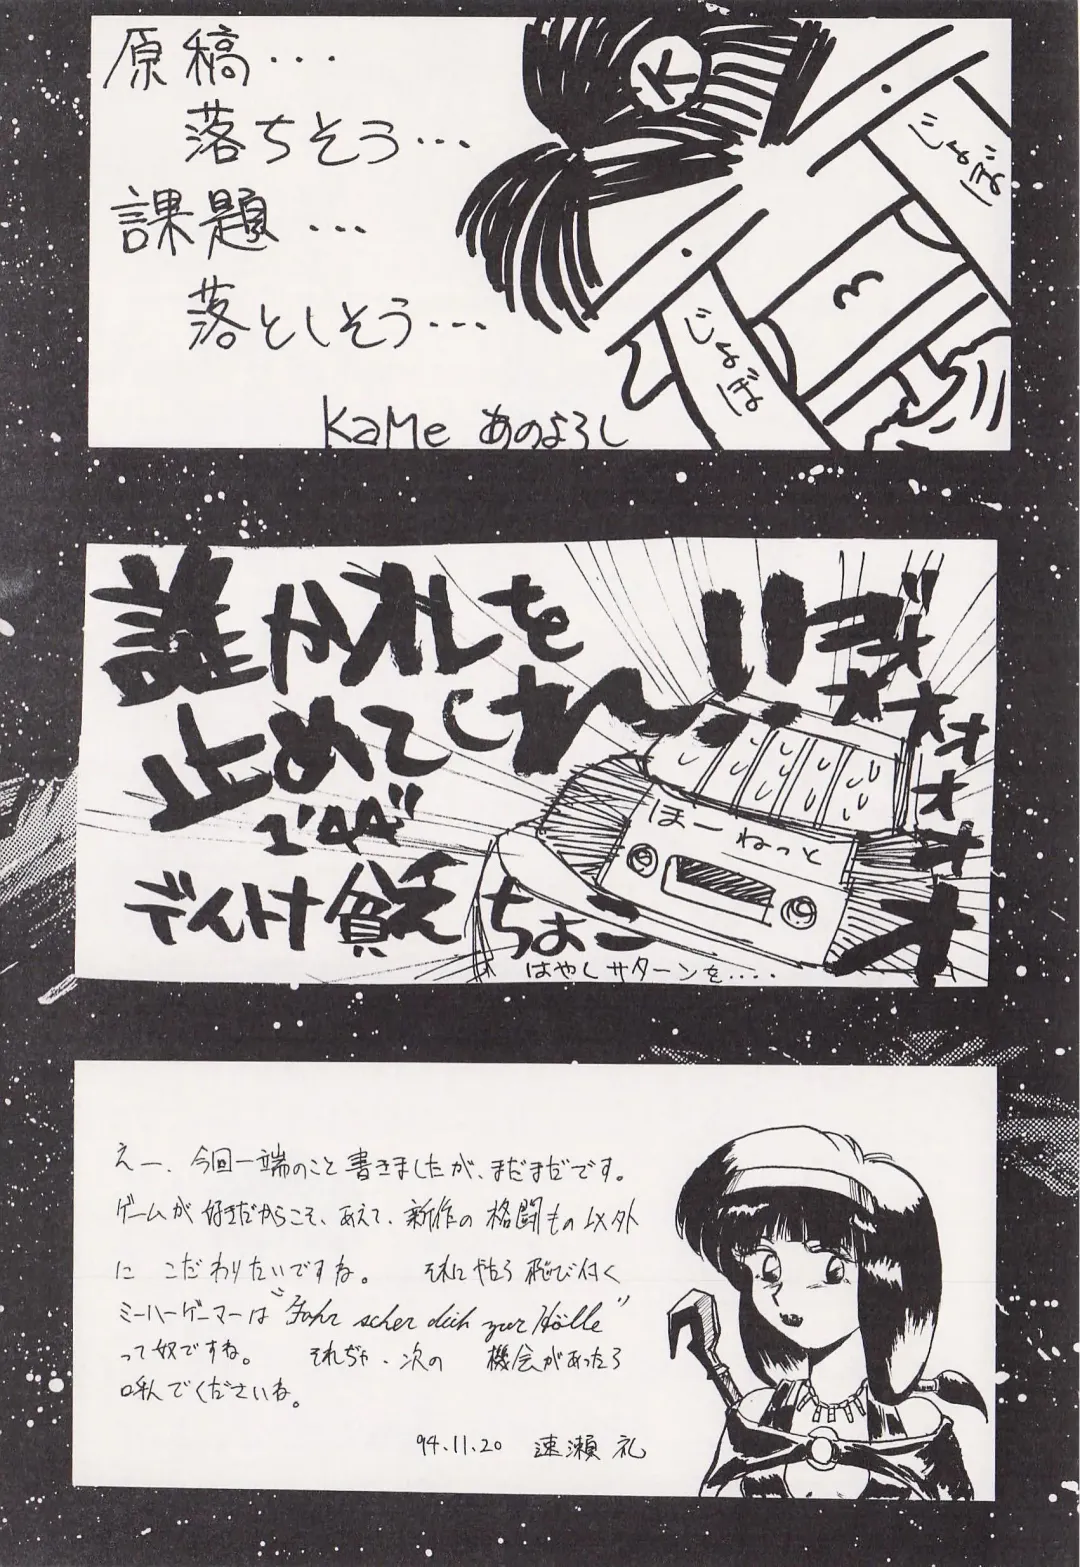 原稿...
落ちそう...
課題...
落としそう...
じょぼ
じょぼ
K
KaMe あのよろし
誰かオレを
止めてくれ〜!!
デイトナ貧乏ちょこ
ほーねっと
はやくサターンを.....
えー、今回一端のこと書きましたが、まだまだです。
ゲームが好きだからこそ、あえて、新作の格闘もの以外
に こだわりたいですね。 それにやたら飛び付く
ミーハーゲーマーは"Fahr scher dich zur Hölle"
って奴ですね。 それぢゃ、次の 機会があったら
呼んでくださいね。
94.11.20 速瀬 礼